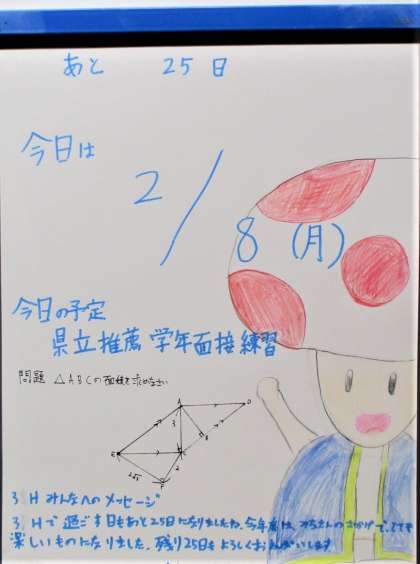 あと 25日
今日は
2/8 (月)
今日の予定
県立推薦 学年面接練習
問題 △ABCの面積を求めなさい
A
D
3
B
E
C
2
2√5
F
3Hみんなへのメッセージ
3Hで過ごす日もあと25日になりましたね。今年度は、みなさんのおかげで、とても
楽しいものになりました。残り25日もよろしくおねがいします